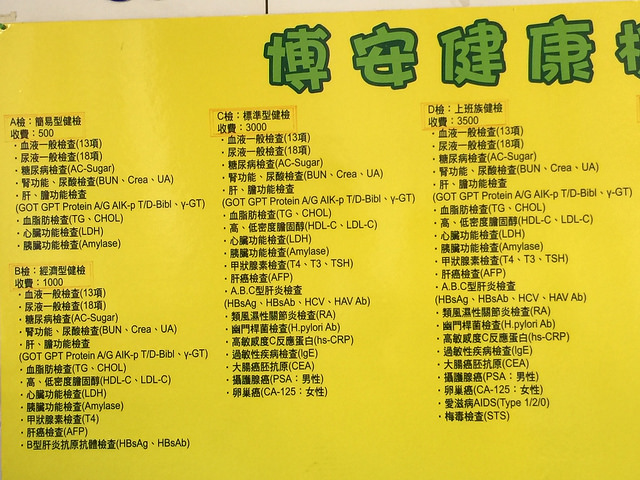 博安健康檢
A檢：簡易型健檢
收費：500
・血液一般檢查(13項)
・尿液一般檢查(18項)
・糖尿病檢查(AC-Sugar)
・腎功能、尿酸檢查(BUN、Crea、UA)
・肝、膽功能檢查
(GOT GPT Protein A/G AlK-p T/D-Bibl、γ-GT)
・血脂肪檢查(TG、CHOL)
・心臟功能檢查(LDH)
・胰臟功能檢查(Amylase)
B檢：經濟型健檢
收費：1000
・血液一般檢查(13項)
・尿液一般檢查(18項)
・糖尿病檢查(AC-Sugar)
・腎功能、尿酸檢查(BUN、Crea、UA)
・肝、膽功能檢查
(GOT GPT Protein A/G AlK-p T/D-Bibl、γ-GT)
・血脂肪檢查(TG、CHOL)
・高、低密度膽固醇(HDL-C、LDL-C)
・心臟功能檢查(LDH)
・胰臟功能檢查(Amylase)
・甲狀腺素檢查(T4)
・肝癌檢查(AFP)
・B型肝炎抗原抗體檢查(HBsAg、HBsAb)
C檢：標準型健檢
收費：3000
・血液一般檢查(13項)
・尿液一般檢查(18項)
・糖尿病檢查(AC-Sugar)
・腎功能、尿酸檢查(BUN、Crea、UA)
・肝、膽功能檢查
(GOT GPT Protein A/G AlK-p T/D-Bibl、γ-GT)
・血脂肪檢查(TG、CHOL)
・高、低密度膽固醇(HDL-C、LDL-C)
・心臟功能檢查(LDH)
・胰臟功能檢查(Amylase)
・甲狀腺素檢查(T4、T3、TSH)
・肝癌檢查(AFP)
・A.B.C型肝炎檢查
(HBsAg、HBsAb、HCV、HAV Ab)
・類風濕性關節炎檢查(RA)
・幽門桿菌檢查(H.pylori Ab)
・高敏感度C反應蛋白(hs-CRP)
・過敏性疾病檢查(IgE)
・大腸癌胚抗原(CEA)
・攝護腺癌(PSA：男性)
・卵巢癌(CA-125：女性)
D檢：上班族健檢
收費：3500
・血液一般檢查(13項)
・尿液一般檢查(18項)
・糖尿病檢查(AC-Sugar)
・腎功能、尿酸檢查(BUN、Crea、UA)
・肝、膽功能檢查
(GOT GPT Protein A/G AlK-p T/D-Bibl、γ-GT)
・血脂肪檢查(TG、CHOL)
・高、低密度膽固醇(HDL-C、LDL-C)
・心臟功能檢查(LDH)
・胰臟功能檢查(Amylase)
・甲狀腺素檢查(T4、T3、TSH)
・肝癌檢查(AFP)
・A.B.C型肝炎檢查
(HBsAg、HBsAb、HCV、HAV Ab)
・類風濕性關節炎檢查(RA)
・幽門桿菌檢查(H.pylori Ab)
・高敏感度C反應蛋白(hs-CRP)
・過敏性疾病檢查(IgE)
・大腸癌胚抗原(CEA)
・攝護腺癌(PSA：男性)
・卵巢癌(CA-125：女性)
・愛滋病AIDS(Type 1/2/0)
・梅毒檢查(STS)